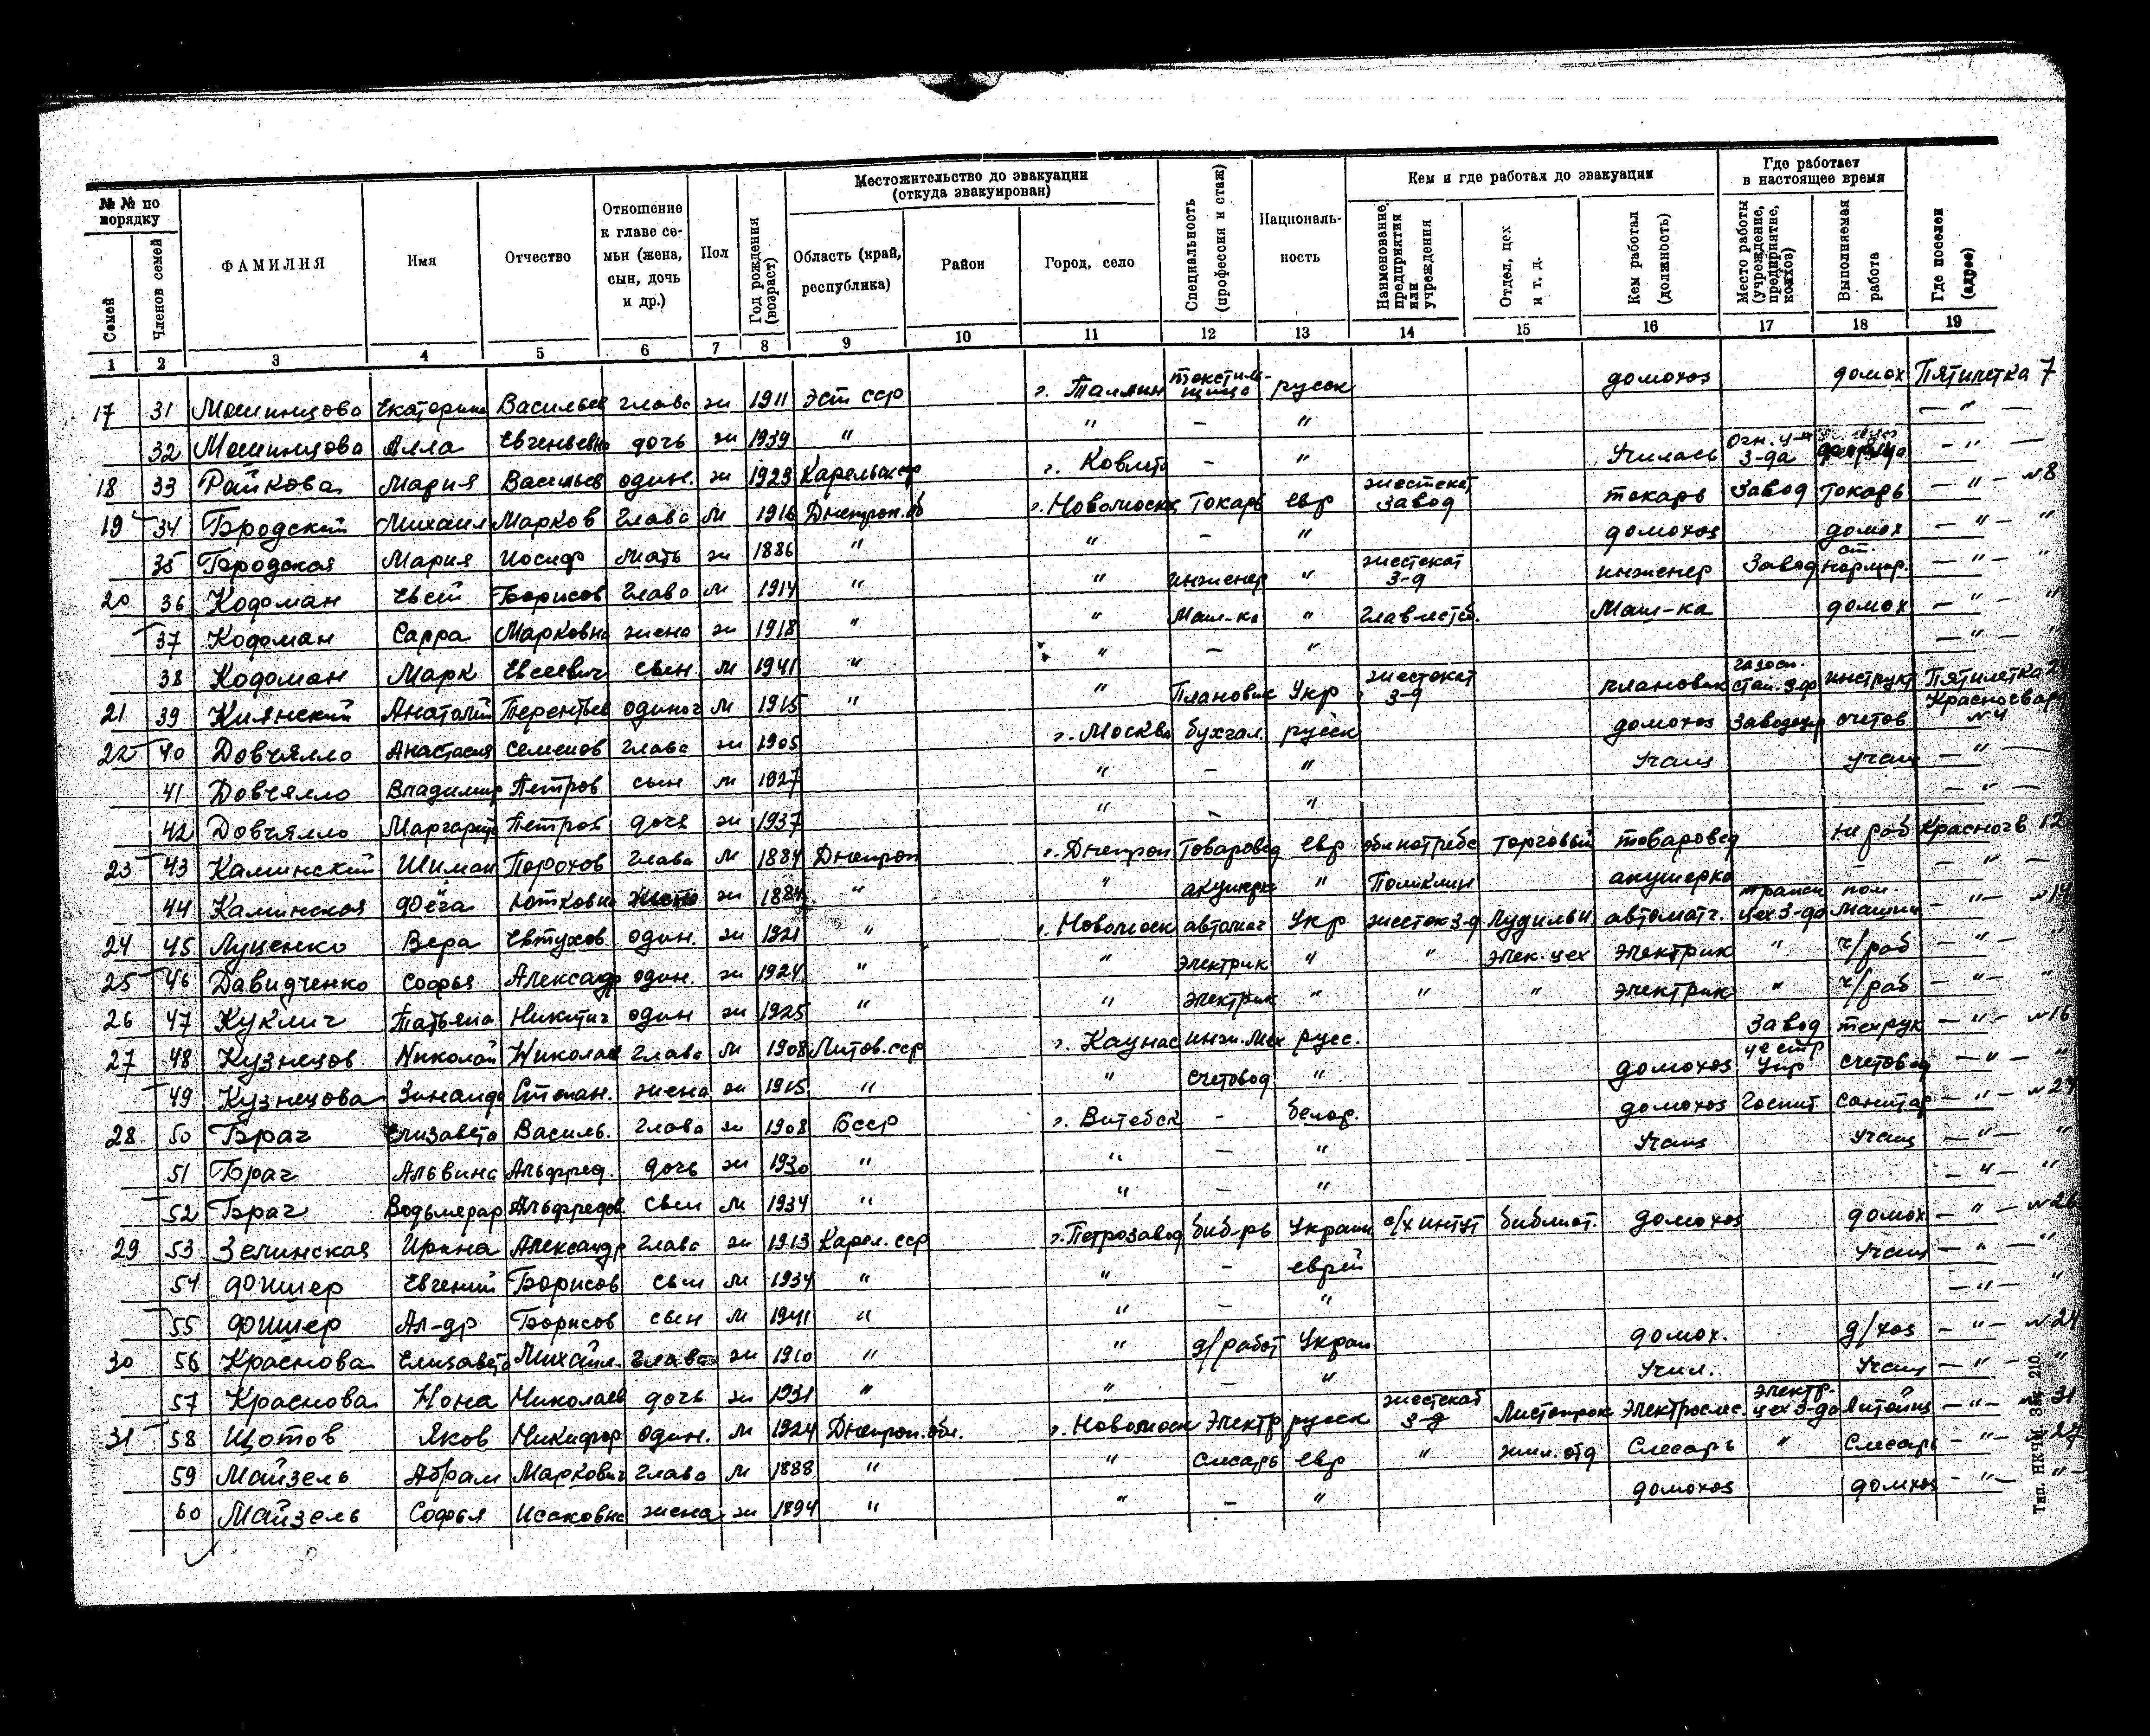 № № по порядку
Семей
Членов семей
ФАМИЛИЯ
Имя
Отчество
Отношение к главе семьи (жена, сын, дочь и др.)
Пол
Год рождения (возраст)
Местожительство до эвакуации (откуда эвакуирован)
Область (край, республика)
Район
Город, село
Специальность (профессия и стаж)
Националь-ность
Кем и где работал до эвакуации
Наименование предприятия или учреждения
Отдел, цех и т. д.
Кем работал (должность)
Где работает в настоящее время
Место работы (учреждение, предприятие, колхоз)
Выполняемая работа
Где поселен (адрес)
1 2 3 4 5 6 7 8 9 10 11 12 13 14 15 16 17 18 19
17 31 Машинцова Екатерина Васильев глава ж 1911 Эст ССР г. Таллин текстиль-щица русск домохоз домох Пятилетка 7
32 Машинцова Алла Евгеньевна дочь ж 1939 " " - " - " -
18 33 Райкова Мария Васильев один. ж 1923 г. - " Училась Огн. 3-да - " -
19 34 Бродский Михаил Марков глава м 1916 Днепроп. об г. Новомоск Токарь евр жестекат завод токарь Завод Токарь - " - №8
35 Бродская Мария Иосиф мать ж 1886 " " - " домохоз домох - " - "
20 36 Кодоман Евсей Борисов глава м 1914 " " инженер " жестекат 3-д инженер Завод ст. нормир. - " - "
37 Кодоман Сарра Марковна жена ж 1918 " " Маш-ка " Маш-ка домох - " - "
38 Кодоман Марк Евсеевич сын м 1941 " " - " - " - "
21 39 Киянский Анатолий Терентьев одиноч м 1915 " " Плановик Укр жестекат 3-д плановик инструкт Пятилетка
22 40 Довчялло Анастасия Семенов глава ж 1905 г. Москва бухгал. русск домохоз счетов Красногвар №4
41 Довчялло Владимир Петров сын м 1927 " - " Учащ учащ - " -
42 Довчялло Маргарита Петров дочь ж 1937 " - " - " -
23 43 Каминский Шиман Порохов глава м 1884 Днепроп г. Днепроп Товаровед евр Торговый товаровед не раб Красногв 12
44 Каминская Фейга Ютковна ж 1884 " " акушерка " Поликлин акушерка - " -
24 45 Луценко Вера Евтухов. один. ж 1921 " г. Новомоск автомат Укр жесток 3-д Лудильн автоматч. цех 3-да пом. машин - " - №14
25 46 Давидченко Софья Александр один. ж 1924 " " электрик " " элек. цех электрик " ч/раб - " - "
26 47 Куклич Татьяна Никитич один ж 1925 " " электрик " " " электрик " ч/раб - " - "
27 48 Кузнецов Николай Николаев глава м 1908 Литов. ССР г. Каунас инж. мех русс. Завод техрук - " - №16
49 Кузнецова Зинаида Степан. жена ж 1915 " " счетовод " домохоз счетовод - " - "
28 50 Брач Елизавета Василь. глава ж 1908 БССР г. Витебск - белор. домохоз Госпит санитар - " -
51 Брач Альвина Альфред. дочь ж 1930 " " - " Учащ Учащ - " - "
52 Брач Водьмерар Альфредов. сын м 1934 " " - " - " - "
29 53 Зелинская Ирина Александр глава ж 1913 Карел. ССР г. Петрозавод биб-рь Украин с/х интут библиот. домохоз домох - " - №26
54 Фишер Евгений Борисов сын м 1934 " " - еврей Учащ - " - "
55 Фишер Ал-др Борисов сын м 1941 " " - " - " - "
30 56 Краснова Елизавета Михайл. глава ж 1910 " " д/работ Украин домох. д/хоз - " - №24
57 Краснова Нона Николаев дочь ж 1931 " " - " Учил. Учащ - " - "
31 58 Щотов Яков Никифор один. м 1924 Днепроп. обл. г. Новомоск Электр русск жестекат 3-д Листопрок Электрослес. электр. цех 3-да Литейщ - " - №31
59 Майзель Абрам Маркович глава м 1888 " " Слесарь евр " жил. отд Слесарь " Слесарь - " - 27
60 Майзель Софья Исаковна жена ж 1894 " " - " домохоз домхоз - " - "
Тип. НКЧМ. Зак. 210.